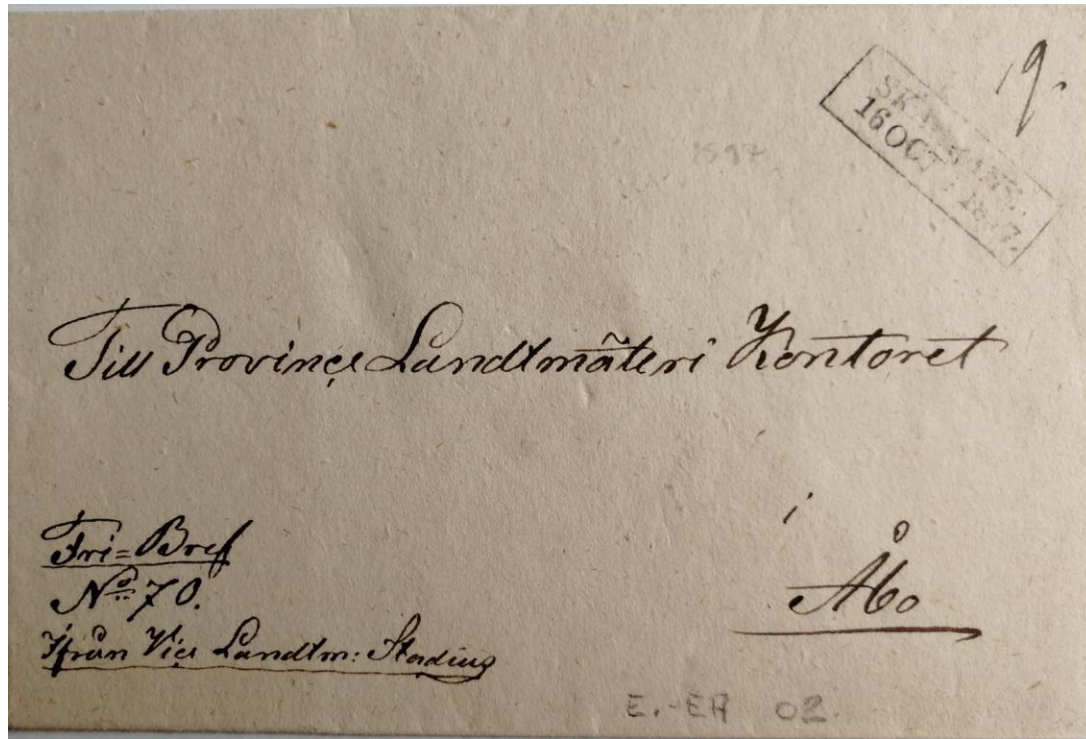 19.
16 OCT. 18
Till Province Landtmäteri Kontoret
i
Åbo
Fri=Bref
No 70.
Ifrån Vice Landtm: Stadius
E.-ER 02